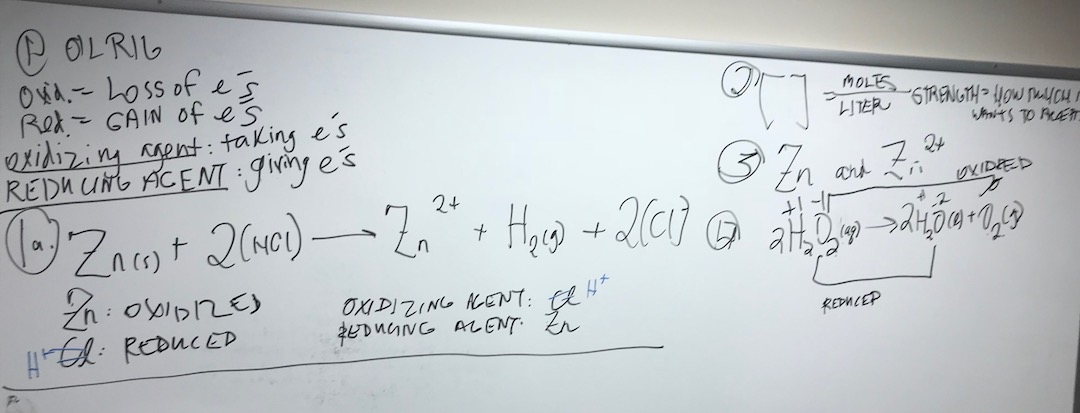 ① OILRIG
Oxid. = Loss of e⁻s
Red. = GAIN of e⁻s
oxidizing agent: taking e⁻s
REDUCING AGENT: giving e⁻s
1a. Zn(s) + 2(HCl) → Zn²⁺ + H₂(g) + 2(Cl)
Zn: OXIDIZED
H⁺ Cl: REDUCED
OXIDIZING AGENT: Cl H⁺
REDUCING AGENT: Zn
2 [ ] = MOLES / LITER STRENGTH = HOW MUCH
WANTS TO
③ Zn and Zn²⁺
OXIDIZED
+1 -1 + -2 0
2H₂O₂(aq) → 2H₂O(l) + O₂(g)
REDUCED